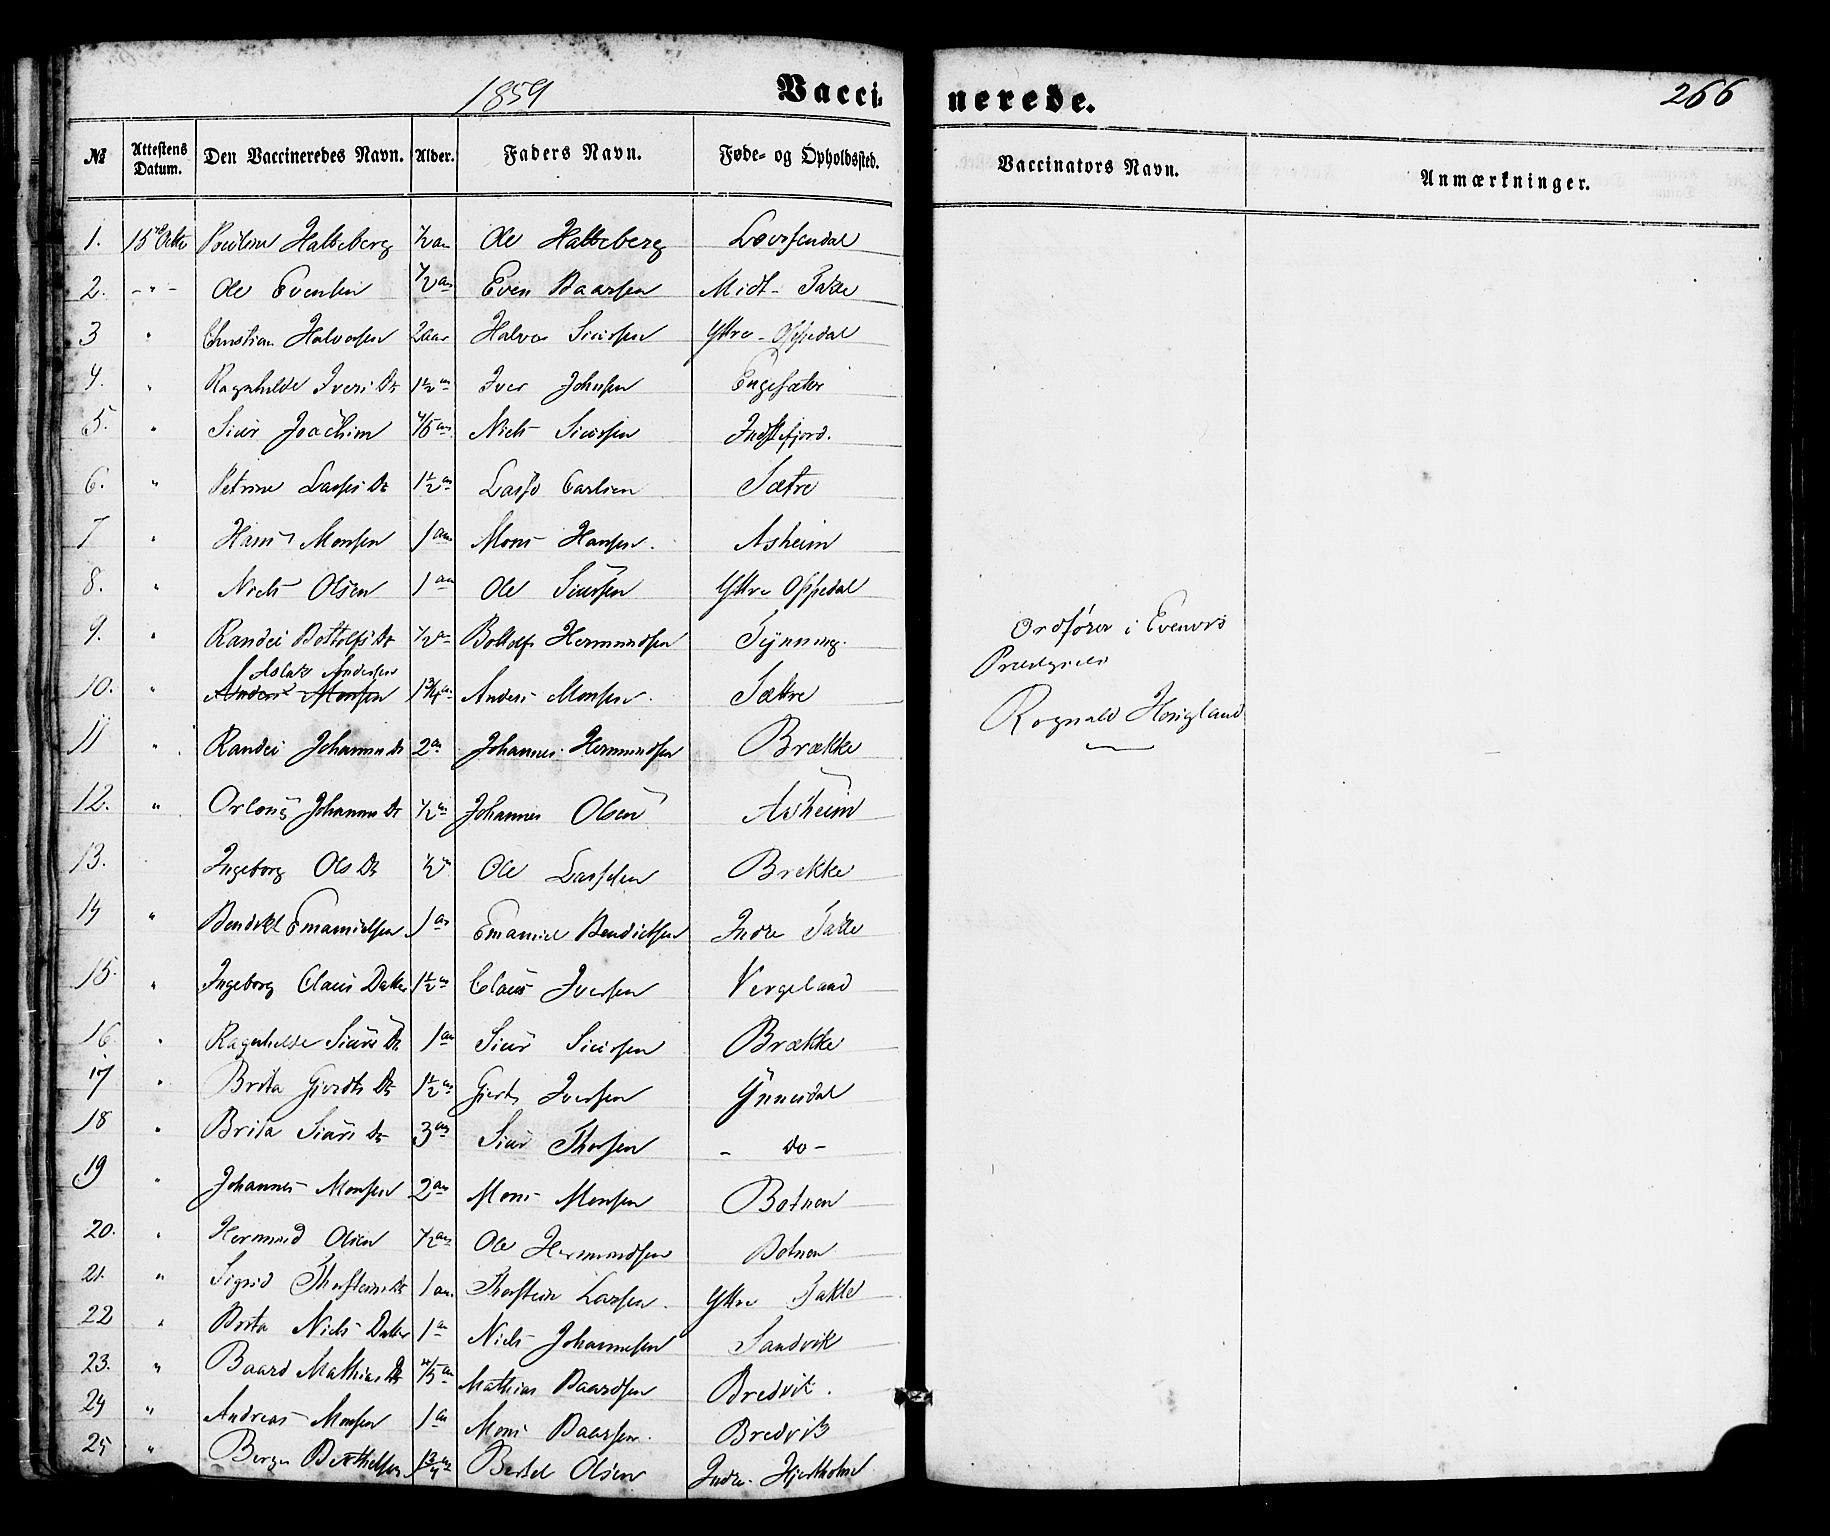 1859 Vaccinerede. 266
№ Attestens Datum. Den Vaccineredes Navn. Alder. Faders Navn. Føde- og Opholdssted. Vaccinators Navn. Anmærkninger.
1. 15 Octbr Halleberg 1/2 aar Ole Halleberg
2. - " - Ole Evensen 1/2 aar Even Baarsen Midt-Takle
3 " Christian Halvorsen 2 aar Halvor Siursen Yttre-Oppedal
4. " Ragnhilde Ivers Dr 1 1/2 aar Iver Johnsen Engesæter
5. " Siur Joachim 4/5 aar Niels Siursen Indstefjord.
6. " Petrine Lasses Dr 1 1/2 aar Lasse Carlsen Sætre
7 " Hans Monsen 1 aar Mons Hansen. Asheim
8. " Niels Olsen 1 aar Ole Siursen Yttre Oppedal
9. " Randei Bottolfs Dr 1/2 aar Bottolf Hermundsen Tynning.
Aslak Andersen
10. " Anders Monsen 1 3/4 aar Anders Monsen. Sættre
11 " Randei Johannes Dr 2 aar Johannes Hermundsen Brække
12. " Johannes Dr 1/2 aar Johannes Olsen Asheim
13. Ingeborg Ols Dr 1/2 aar Ole Lassesen Brekke
14 " Bendikt Emanuelsen 1 aar Emanuel Bendictsen Indre Takle
15. " Ingeborg Claus Datter 1 1/2 aar Claus Iversen Vergeland
16. " Ragnhilde Siurs Dr 1 aar Siur Siursen Brække
17 " Brita Gierdts Dr 1 1/2 aar Gierdt Iversen Ynnesdal
18 " Brita Siurs Dr 3 aar Siur Thorsen - do -
19 " Johannes Monsen 2 aar Mons Monsen Botnen
20. " Hermund Olsen 1/2 aar Ole Hermundsen Botnen
21. " Sigrid Thorsteins Dr 1 aar. Thorstein Larsen. Yttre Takle
22 " Brita Niels Datter 1 aar Niels Johannesen Sandvik
23. " Baard Mathias Dr 4/5 aar Mathias Baardsen Bredvik.
24 " Andreas Monsen 1 aar Mons Baarsen. Bredvik
25 " Berge Berthelsen 1 3/4 aar Bertel Olsen Indre Hjertholm
Ordfører i Evenvrs
Præstgield
Rognald Hougland